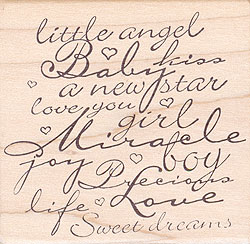 little angel
Baby kiss
a new star
love you
girl
Miracle
joy boy
Precious
life Love
Sweet dreams